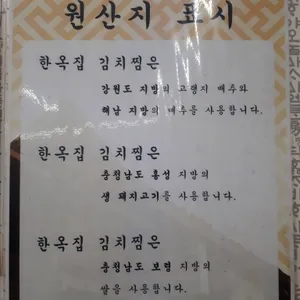 원산지 표시
한옥집 김치찜은
강원도 지방의 고랭지 배추와
해남 지방의 배추를 사용합니다.
한옥집 김치찜은
충청남도 홍성 지방의
생 돼지고기를 사용합니다.
한옥집 김치찜은
충청남도 보령 지방의
쌀을 사용합니다.